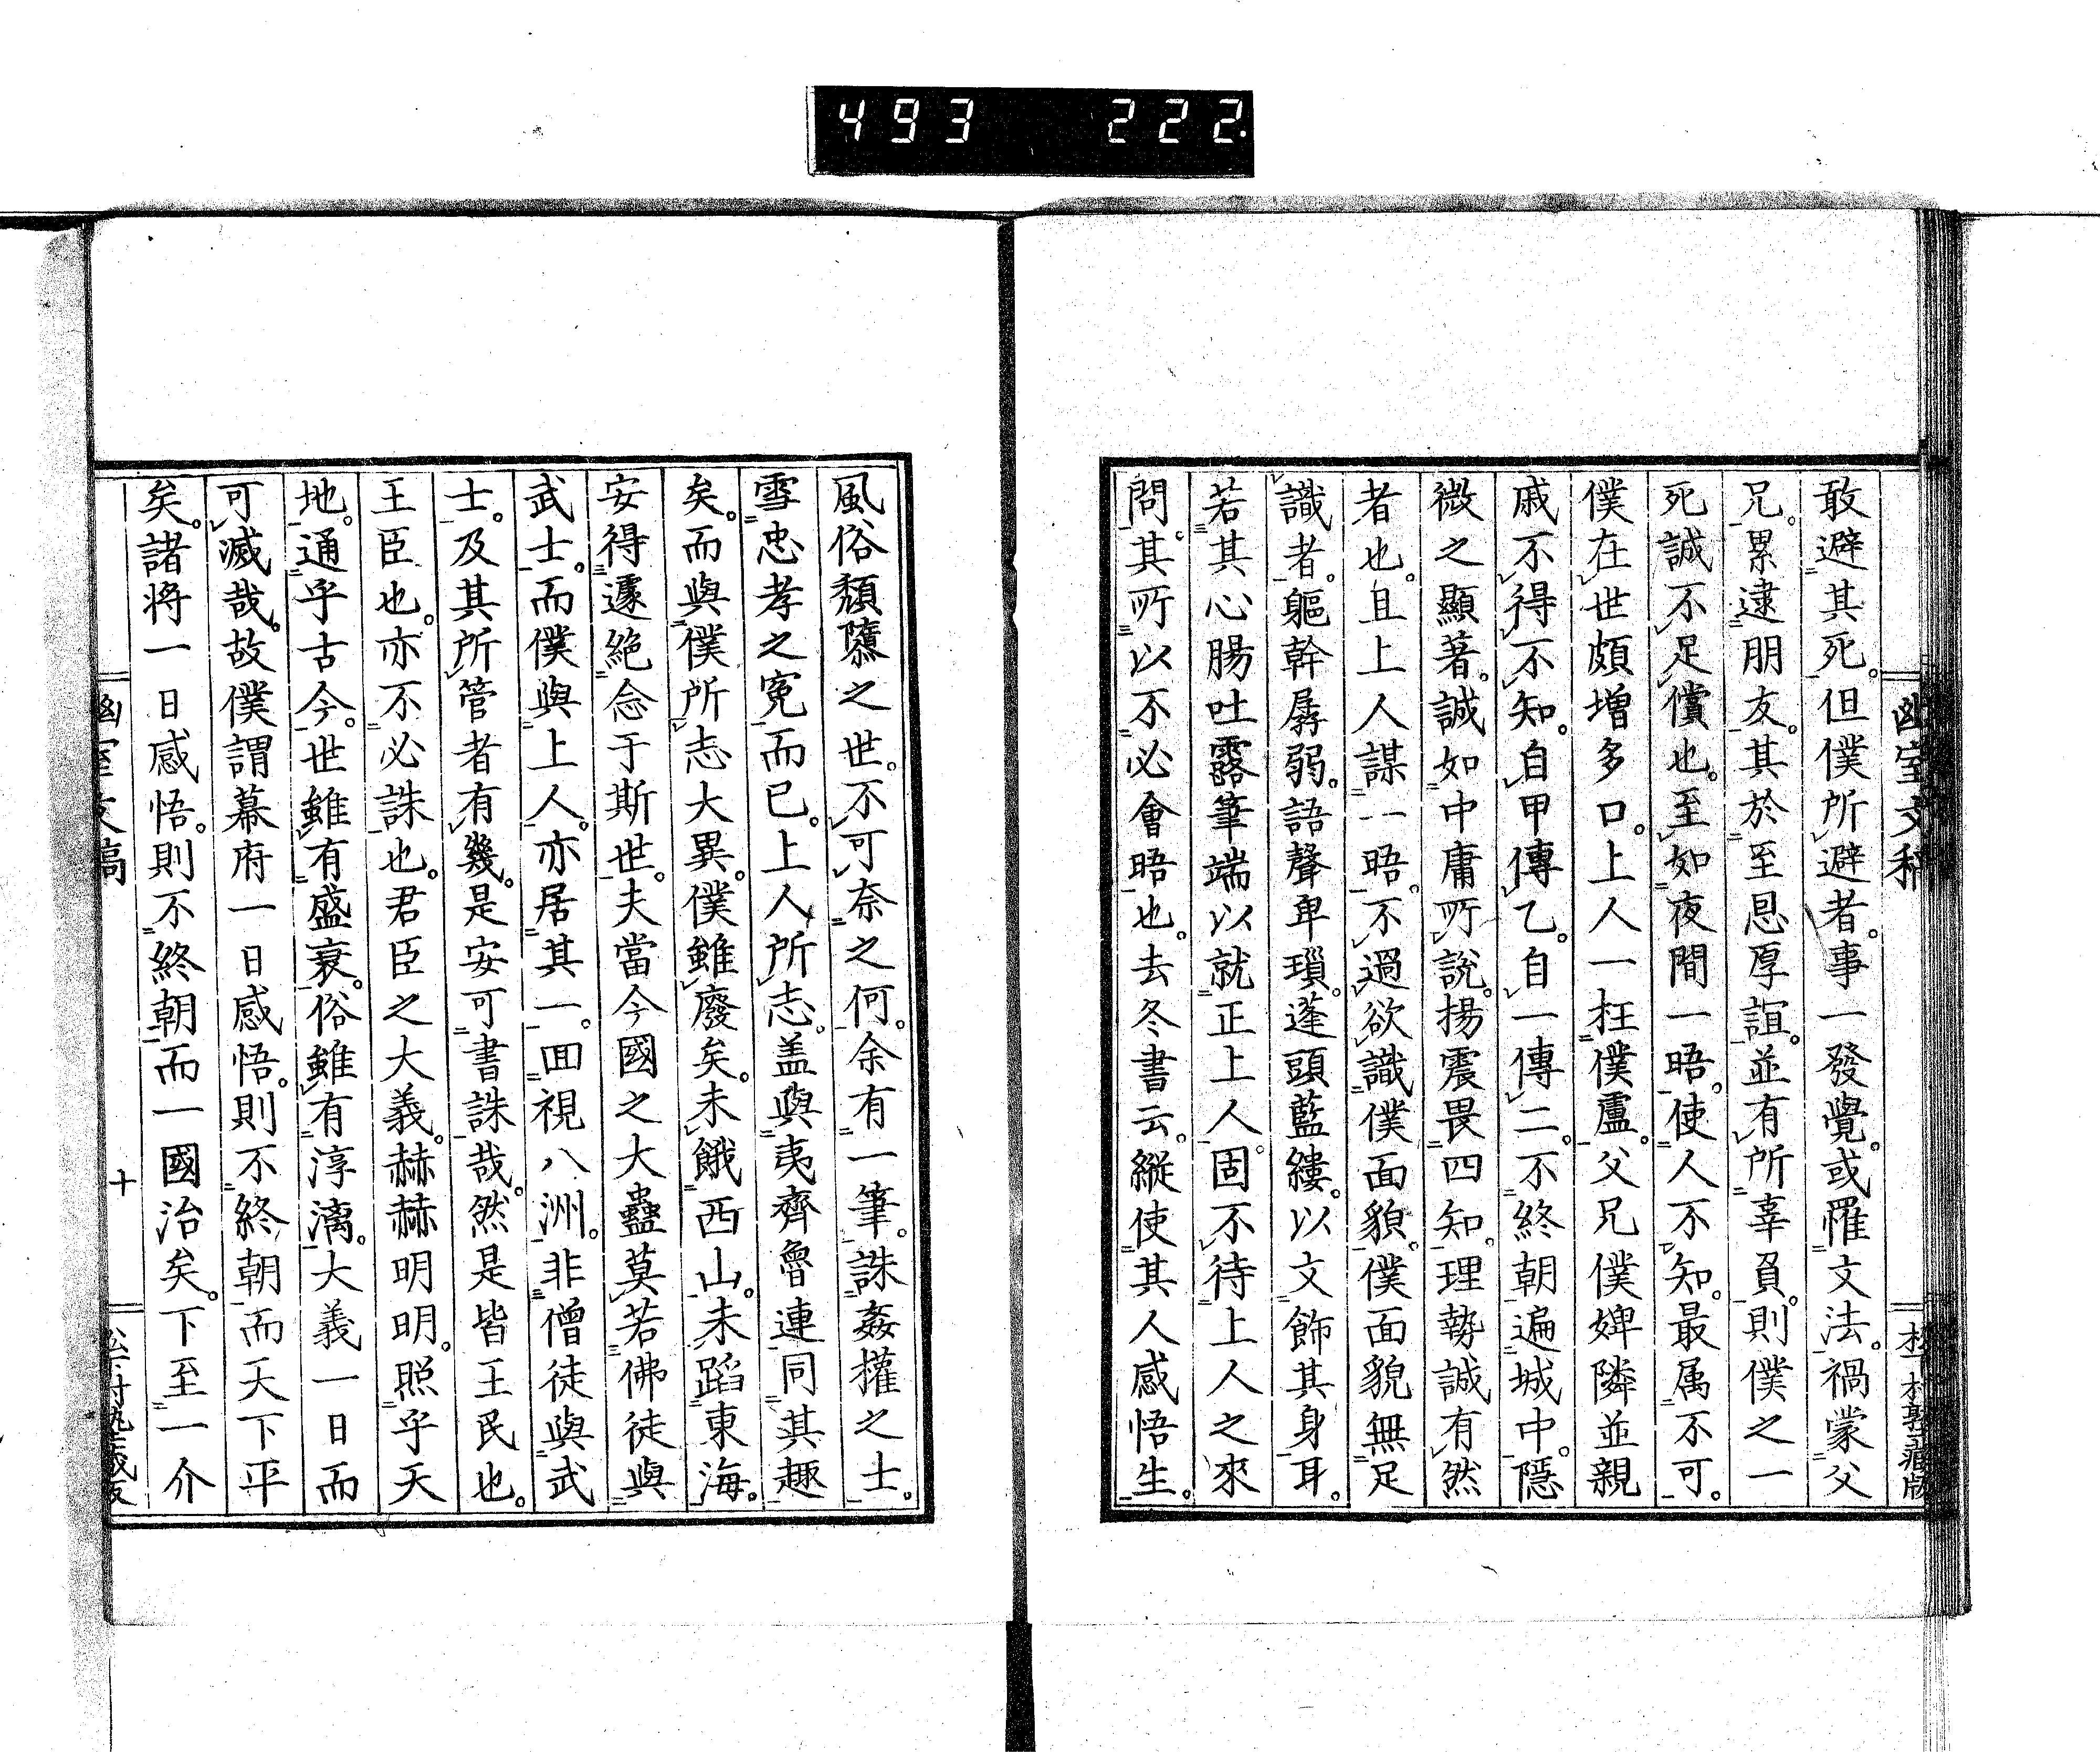 493 222
幽室文稿 松下村塾蔵版
敢避其死。但僕所避者。事一發覺。或罹文法。禍蒙父
兄。累逮朋友。其於至恩厚誼。並有所辜負。則僕之一
死誠不足償也。至如夜間一晤。使人不知。最属不可。
僕在世頗増多口。上人一枉僕盧。父兄僕婢隣並親
戚不得不知。自甲傳乙。自一傳二。不終朝遍城中。隱
微之顯著。誠如中庸所說。揚震畏四知。理勢誠有然
者也。且上人謀一晤。不過欲識僕面貌。僕面貌無足
識者。軀幹孱弱。語聲卑瑣。蓬頭藍縷。以文飾其身耳。
若其心腸吐露筆端以就正上人。固不待上人之來
問。其所以不必會晤也。去冬書云。縱使其人感悟生。
風俗頽隳之世。不可奈之何。余有一筆。誅姦權之士。
雪忠孝之寃而已。上人所志。盖與夷齊魯連同其趣
矣。而與僕所志大異。僕雖廢矣。未餓西山。未蹈東海。
安得遽絶念于斯世。夫當今國之大蠱莫若佛徒與
武士。而僕與上人。亦居其一。囬視八洲。非僧徒與武
士。及其所管者有幾。是安可書誅哉。然是皆王民也。
王臣也。亦不必誅也。君臣之大義。赫赫明明。照乎天
地。通乎古今。世雖有盛衰。俗雖有淳漓。大義一日而
可滅哉。故僕謂幕府一日感悟。則不終朝而天下平
矣。諸将一日感悟。則不終朝而一國治矣。下至一介
幽室文稿 十 松下村塾蔵版